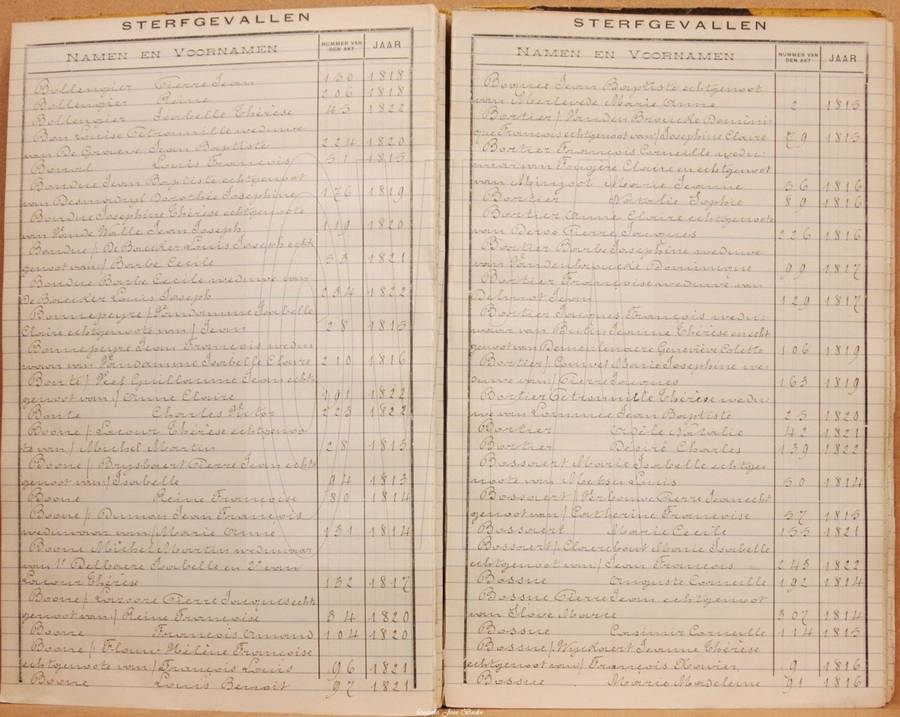 STERFGEVALLEN
NAMEN EN VOORNAMEN NUMMER VAN DEN AKT JAAR
Bollengier Pierre Jean 130 1818
Bollengier Reine 206 1818
Bollengier Isabelle Thérèse 43 1822
Bon Louise Pétronnille weduwe
van De Graeve Jean Baptiste 224 1820
Louis François 51 1815
Bondue Jean Baptiste echtgenoot
van Desmadryl Dorothée Josephine 176 1819
Bondue Josephine Thérèse echtgenoote
van Vande Walle Jean Joseph 119 1820
Bondue / De Baecker Louis Joseph echt
genoot van / Barbe Cecile 1821
Bondue Barbe Cecile weduwe van
De Baecker Louis Joseph 234 1822
Bonnepeyre / Vandamme Isabelle
Claire echtgenoote van / Jean 28 1815
Bonnepeyre Jean François wedu
waar van Vandamme Isabelle Claire 210 1816
Bonte / Neef Guillaume Jean echt
genoot van / Anne Claire 191 1822
Bonte Charles Victor 223 1822
Boone / Lacour Thérèse echtgenoo
te van / Michel Martin 28 1813
Boone / Brysbaert Pierre Jean echt
genoot van / Isabelle 94 1813
Boone Reine Françoise 80 1814
Boone / Dumon Jean François
weduwaar van / Marie Anne 131 1814
Boone Michel Martin weduwaar
van 1° Delbaere Isabelle en 2° van
Lacour Thérèse 132 1817
Boone / Pierre Jacques echt
genoot van / Reine Françoise 34 1820
Boone François Amand 104 1820
Boone / Hélène Françoise
echtgenoote van / François Louis 96 1821
Boone Louis Benoit 97 1821
STERFGEVALLEN
NAMEN EN VOORNAMEN NUMMER VAN DEN AKT JAAR
Boquet Jean Baptiste echtgenoot
van Meerlevede Marie Anne 2 1813
Bortier / Vanden Broucke Domini
que François echtgenoot van / Josephine Claire 79 1813
Bortier François Corneille wedu
waar van Fougère Claire en echtgenoot
van Mingoot Marie Jeanne 36 1816
Bortier Natalie Sophie 89 1816
Bortier Anne Claire echtgenoote
van Pierre Jacques 226 1816
Bortier Barbe Josephine weduwe
van Vandenbroucke Dominique 99 1817
Bortier Françoise weduwe van
Jean 129 1817
Bortier Jacques François wedu
waar van Butin Jeanne Thérèse en echt
genoot van Demeulenaere Geneviève Colette 106 1819
Bortier / Marie Josephine we
duwe van / Pierre Jacques 163 1819
Bortier Pétronille Thérèse wedu
we van Lammée Jean Baptiste 25 1820
Bortier Adèle Natalie 42 1821
Bortier Désiré Charles 139 1822
Bossaert Marie Isabelle echtge
noote van Metsu Louis 50 1814
Bossaert / Verbouwe Pierre Jean echt
genoot van / Catherine Françoise 37 1815
Bossaert Marie Cecile 153 1821
Bossaert / Claerbout Marie Isabelle
echtgenoot van / Jean François 243 1822
Bossue Auguste Corneille 192 1814
Bossue Pierre Jean echtgenoot
van Marie 307 1814
Bossue Casimir Corneille 114 1815
Bossue / Wyckaert Jeanne Thérèse
echtgenoot van / François Xavier 9 1816
Bossue Marie Madeleine 91 1816